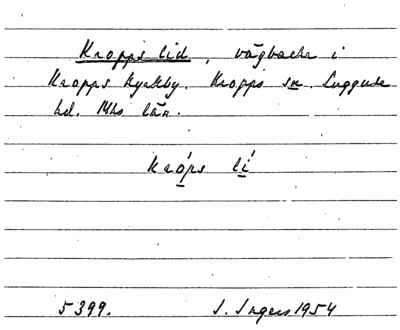 Kropps lid, vägbacke i
Kropps Kyrkby. Kropps sn Luggude
hd. Mhs län.
króps lí
5399. I. Ingers 1954